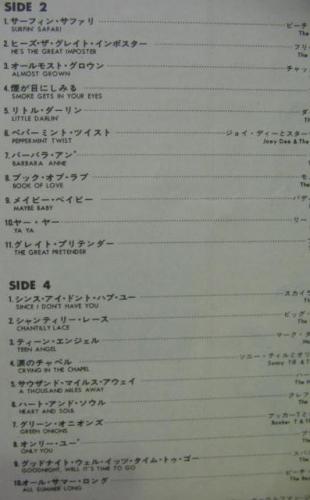 SIDE 2
1. サーフィン・サファリ ビーチ・
SURFIN' SAFARI The
2. ヒーズ・ザ・グレイト・インポスター フリ
HE'S THE GREAT IMPOSTER The
3. オールモスト・グロウン チャッ
ALMOST GROWN
4. 煙が目にしみる
SMOKE GETS IN YOUR EYES
5. リトル・ダーリン ダ
LITTLE DARLIN' Th
6. ペパーミント・ツイスト ジョイ・ディーとスター
PEPPERMINT TWIST Joey Dee & The
7. バーバラ・アン
BARBARA ANNE The
8. ブック・オブ・ラブ モ
BOOK OF LOVE The
9. メイビー・ベイビー バデ
MAYBE BABY
10. ヤー・ヤー リー
YA YA
11. グレイト・プリテンダー
THE GREAT PRETENDER
SIDE 4
1. シンス・アイ・ドント・ハブ・ユー スカイラ
SINCE I DON'T HAVE YOU The
2. シャンティリー・レース ビッグ・
CHANTILLY LACE The
3. ティーン・エンジェル マーク・ダ
TEEN ANGEL
4. 涙のチャペル ソニー・ティルとオリ
CRYING IN THE CHAPEL Sonny Till & T
5. サウザンド・マイルス・アウェイ ハー
A THOUSAND MILES AWAY The H
6. ハート・アンド・ソウル クレフ
HEART AND SOUL The
7. グリーン・オニオンズ ブッカーTと
GREEN ONIONS Booker T & Th
8. オンリー・ユー
ONLY YOU The
9. グッドナイト・ウェル・イッツ・タイム・トゥ・ゴー スパ
GOODNIGHT, WELL IT'S TIME TO GO The
10. オール・サマー・ロング ビーチ・
ALL SUMMER LONG The Be